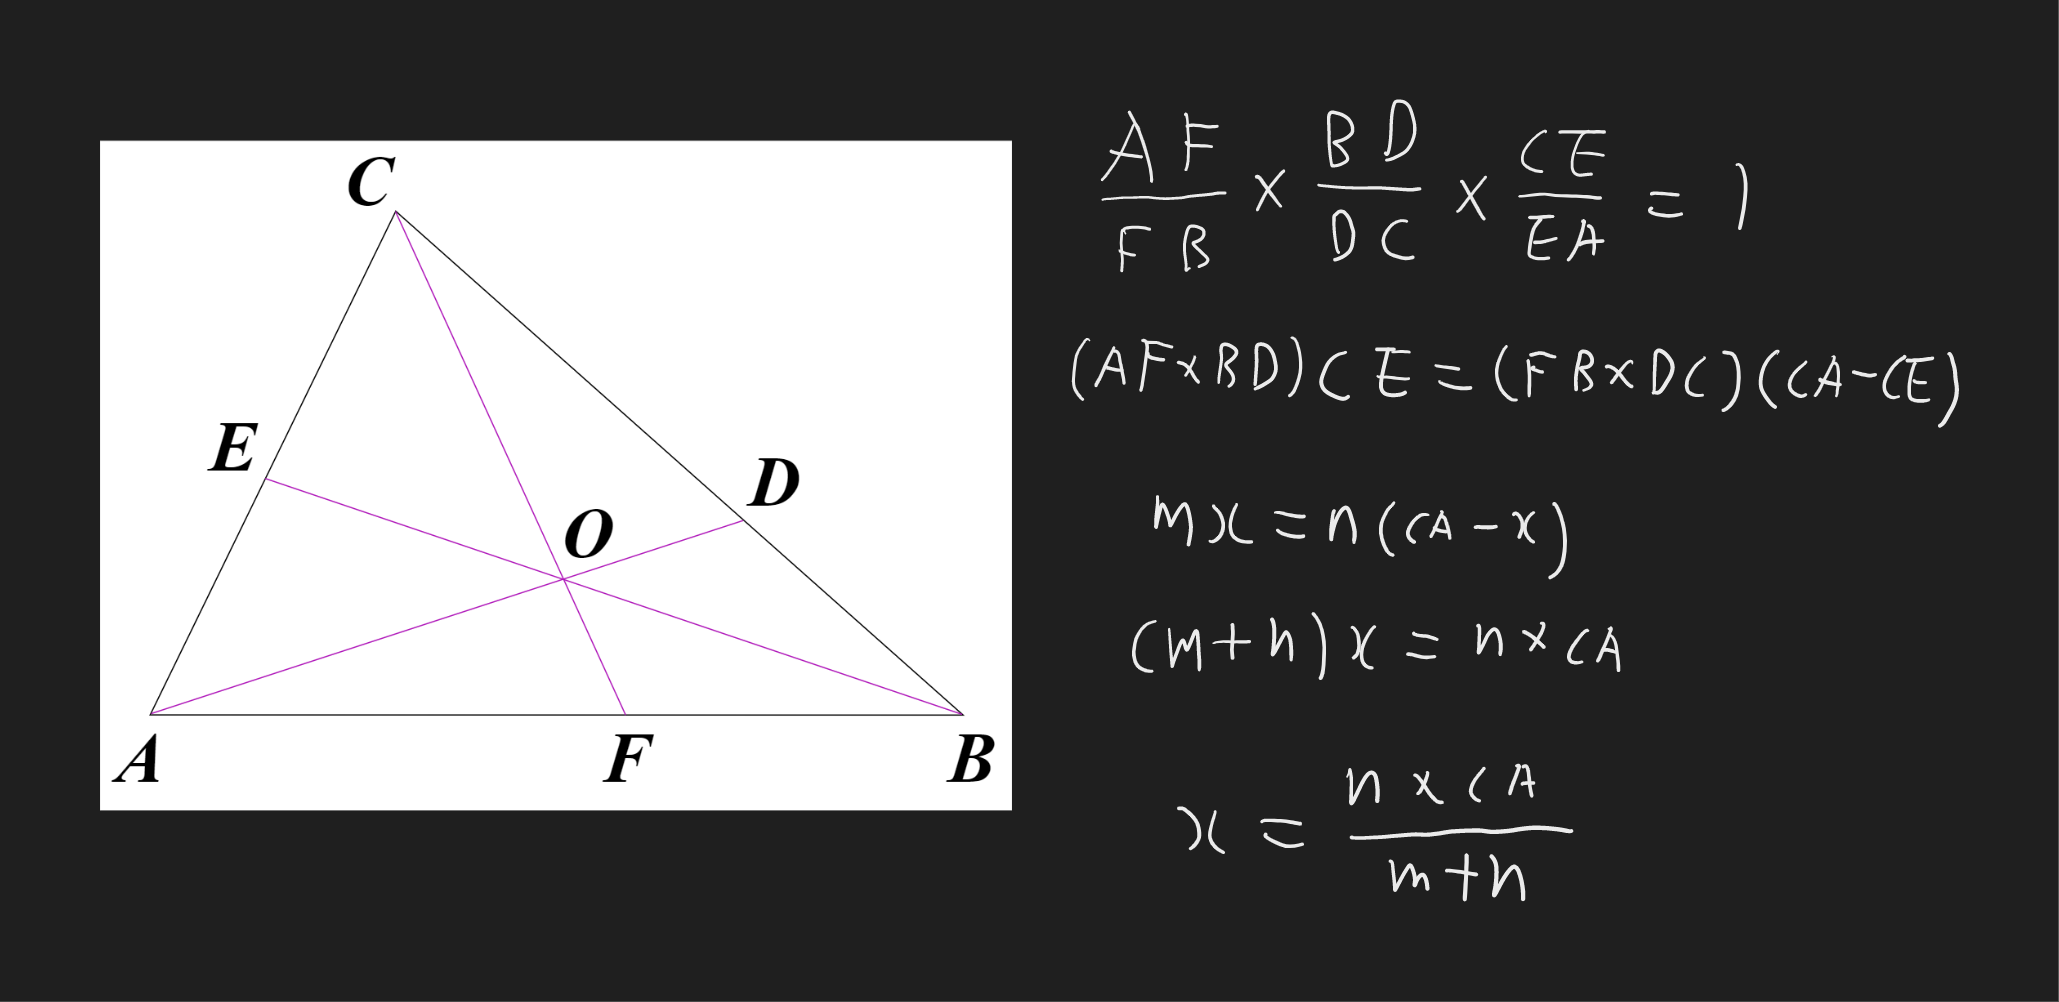 C
E
D
O
A F B
AF/FB × BD/DC × CE/EA = 1
(AF×BD)CE = (FB×DC)(CA-CE)
mx = n(CA-x)
(m+n)x = n×CA
x = n×CA/m+n